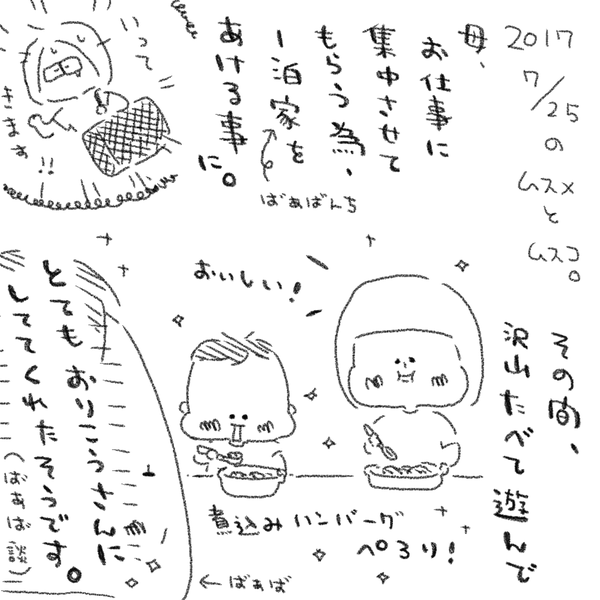 2017
7/25
の
ムスメ
と
ムスコ。
母、
お仕事に
集中させて
もらう為、
一泊家を
あける事
に。
ばぁばんち
いって
きまぁ
す!!
その間、
沢山たべて遊んで
おいしい!
煮込みハンバーグ
ペろり!
←ばぁば
とてもおりこうさんに
しててくれたそうです。
(ばぁば談)